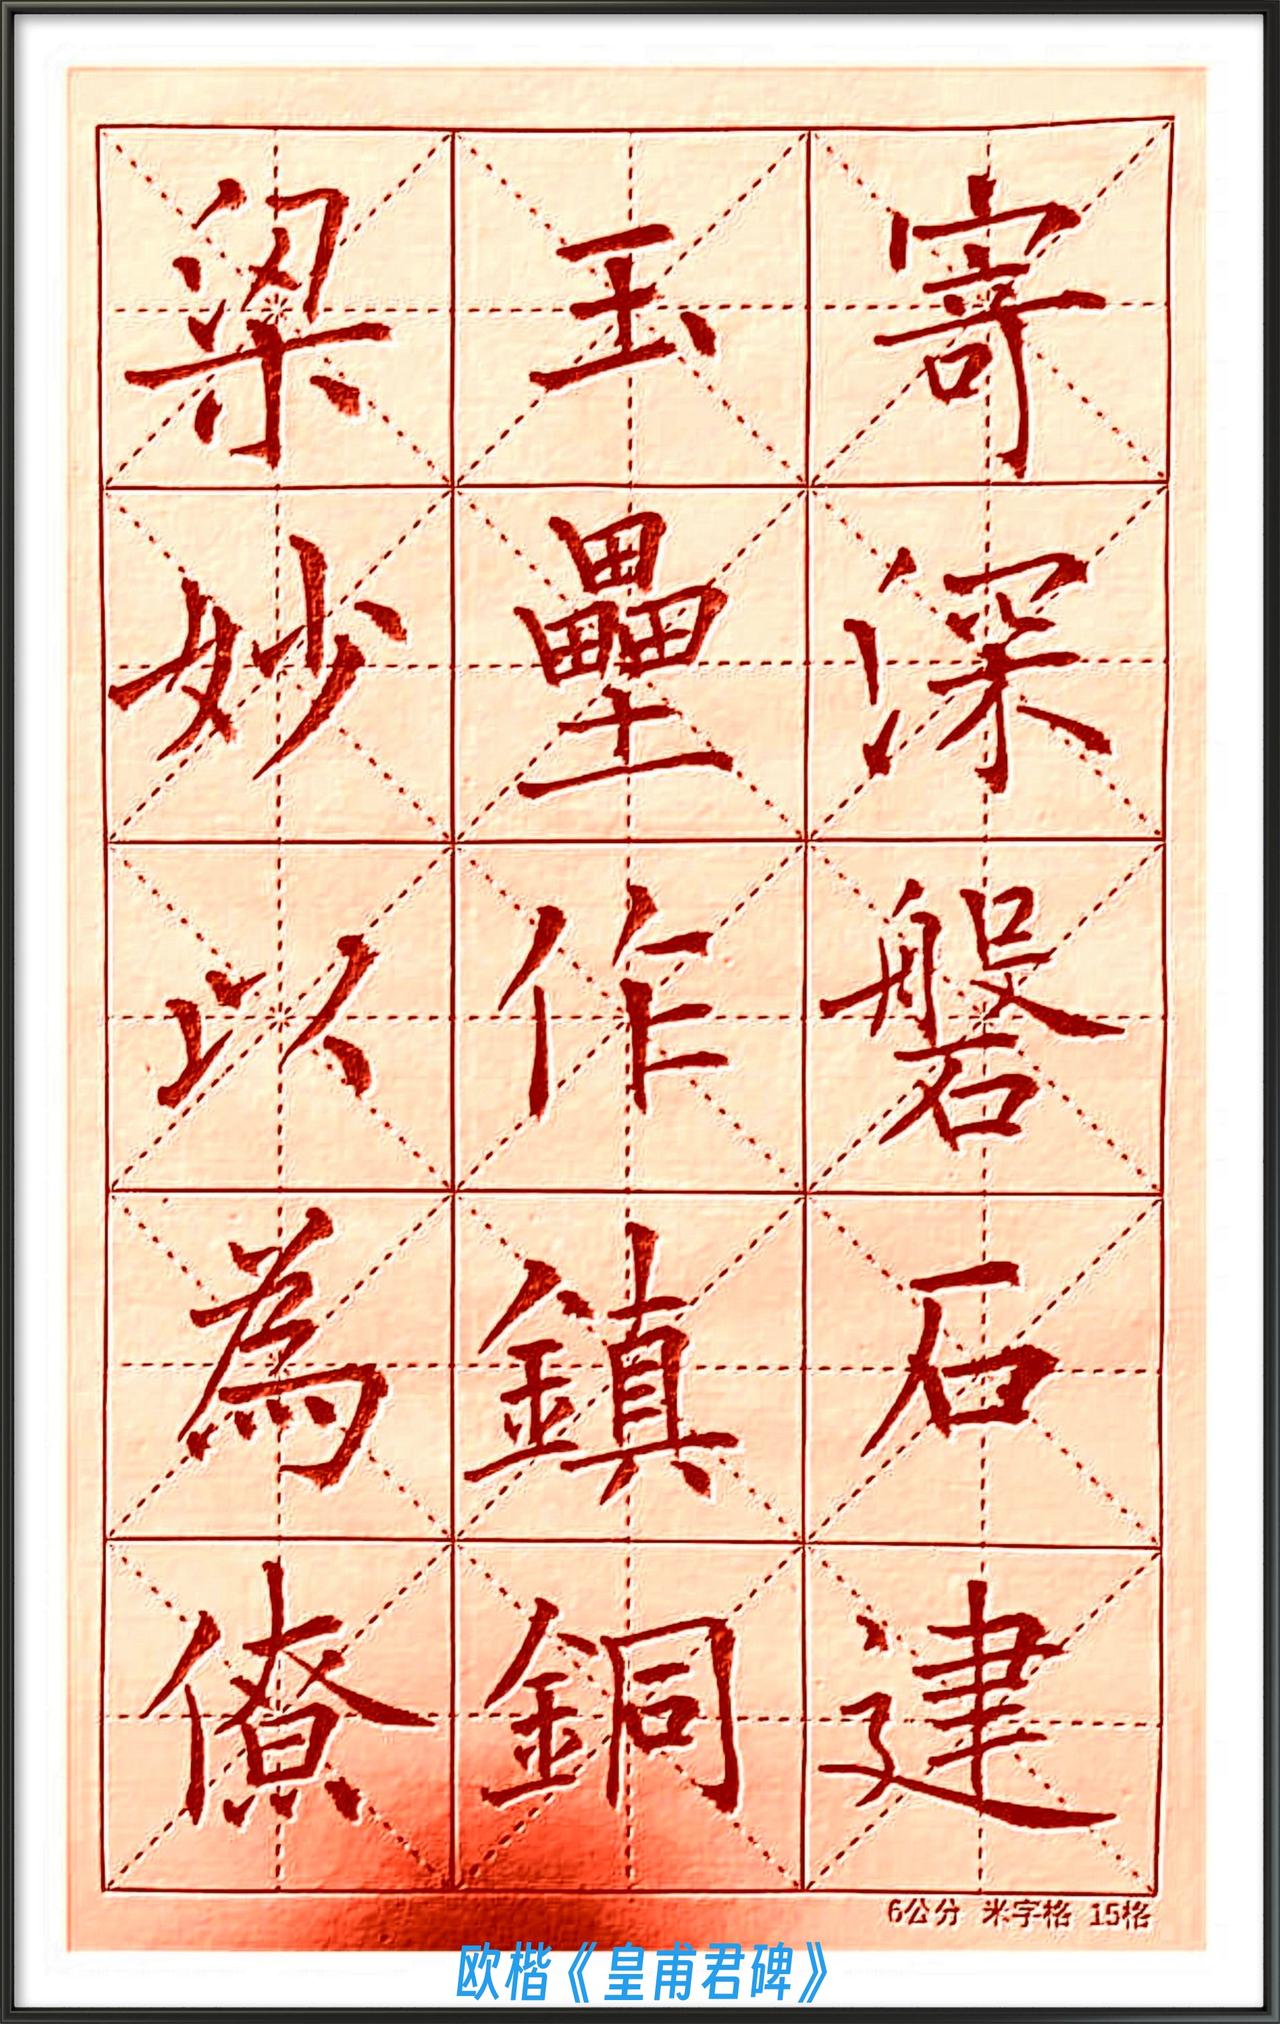 寄深磐石建
玉壘作鎮銅
梁妙以為僚
6公分 米字格 15格
欧楷《皇甫君碑》